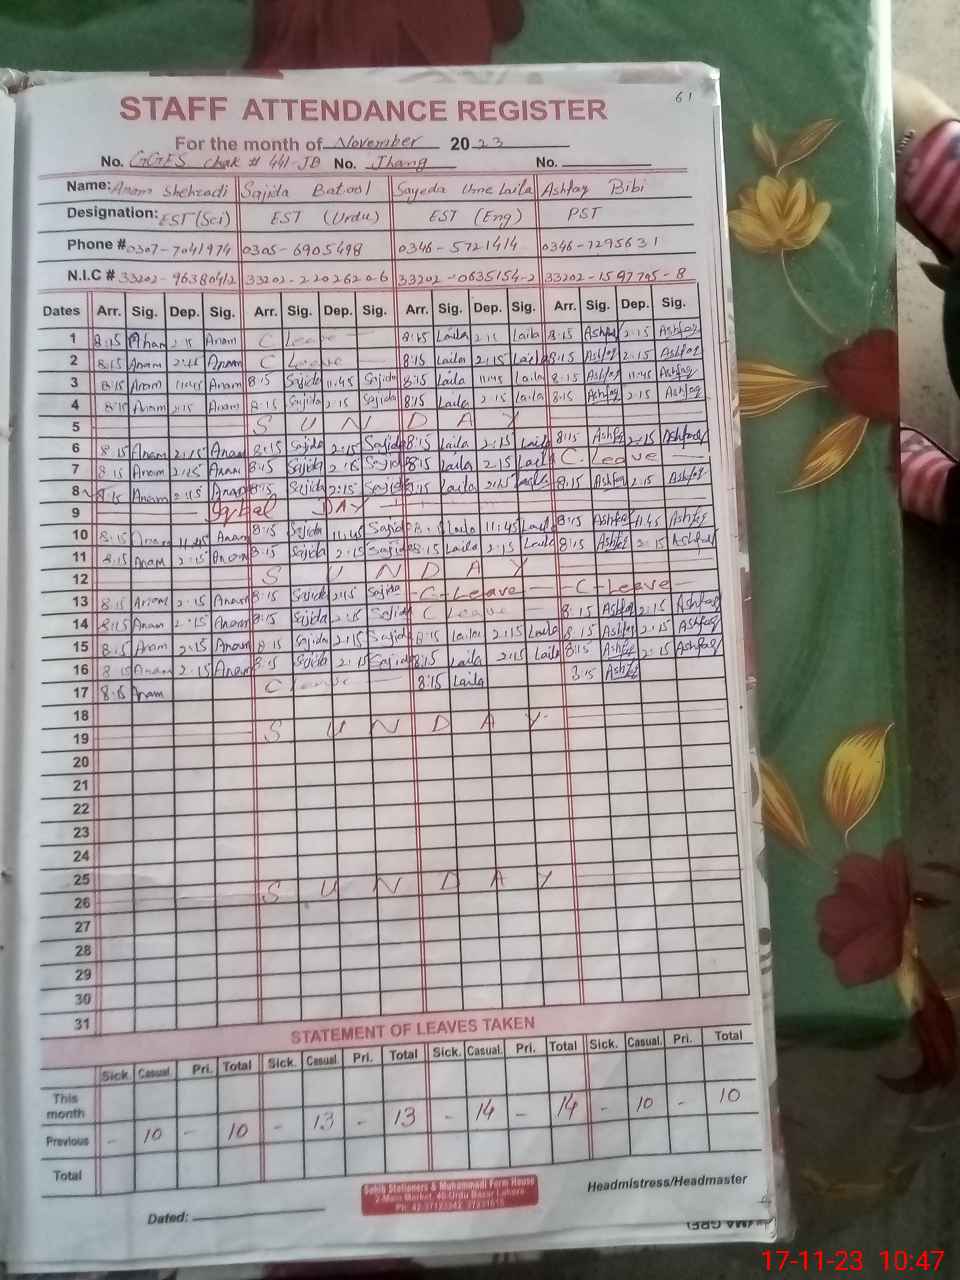 61
STAFF ATTENDANCE REGISTER
For the month of November 2023
No. GGES chak # 441-JB No. Jhang No.
Name: Anam Shehzadi Sajida Batool Sayeda Ume Laila Ashfaq Bibi
Designation: EST (Sci) EST (Urdu) EST (Eng) PST
Phone # 0307-7041974 0305-6905498 0346-5721414 0346-7295631
N.I.C # 33202-96380412 33202-2202620-6 33202-0635154-2 33202-1597795-8
Dates Arr. Sig. Dep. Sig. Arr. Sig. Dep. Sig. Arr. Sig. Dep. Sig. Arr. Sig. Dep. Sig.
1 8:15 Anam 2:15 Anam C Leave 8:15 Laila 2:15 Laila 8:15 Ashfaq 2:15 Ashfaq
2 8:15 Anam 2:15 Anam C Leave 8:15 Laila 2:15 Laila 8:15 Ashfaq 2:15 Ashfaq
3 8:15 Anam 11:45 Anam 8:15 Sajida 11:45 Sajida 8:15 Laila 11:45 Laila 8:15 Ashfaq 11:45 Ashfaq
4 8:15 Anam 2:15 Anam 8:15 Sajida 2:15 Sajida 8:15 Laila 2:15 Laila 8:15 Ashfaq 2:15 Ashfaq
5 S U N D A Y
6 8:15 Anam 2:15 Anam 8:15 Sajida 2:15 Sajida 8:15 Laila 2:15 Laila 8:15 Ashfaq 2:15 Ashfaq
7 8:15 Anam 2:15 Anam 8:15 Sajida 2:15 Sajida 8:15 Laila 2:15 Laila C. Leave
8 8:15 Anam 2:15 Anam 8:15 Sajida 2:15 Sajida 8:15 Laila 2:15 Laila 8:15 Ashfaq 2:15 Ashfaq
9 Iqbal DAY
10 8:15 Anam 11:45 Anam 8:15 Sajida 11:45 Sajida Laila 11:45 Laila 8:15 Ashfaq 11:45 Ashfaq
11 8:15 Anam 2:15 Anam 8:15 Sajida 2:15 Sajida 8:15 Laila 2:15 Laila 8:15 Ashfaq 2:15 Ashfaq
12 S U N D A Y
13 8:15 Anam 2:15 Anam 8:15 Sajida 2:15 Sajida C-Leave C-Leave
14 8:15 Anam 2:15 Anam 8:15 Sajida 2:15 Sajida C Leave 8:15 Ashfaq 2:15 Ashfaq
15 8:15 Anam 2:15 Anam 8:15 Sajida 2:15 Sajida 8:15 Laila 2:15 Laila 8:15 Ashfaq 2:15 Ashfaq
16 8:15 Anam 2:15 Anam 8:15 Sajida 2:15 Sajida 8:15 Laila 2:15 Laila 8:15 Ashfaq 2:15 Ashfaq
17 8:15 Anam C leave 8:15 Laila 8:15 Ashfaq
18
19 S U N D A Y
20
21
22
23
24
25
26 S U N D A Y
27
28
29
30
31
STATEMENT OF LEAVES TAKEN
Sick. Casual. Pri. Total Sick. Casual. Pri. Total Sick. Casual. Pri. Total Sick. Casual. Pri. Total
This month
Previous - 10 - 10 - 13 - 13 - 14 - 14 - 10 - 10
Total
Sohib Stationers & Muhammadi Form House
2-Main Market, 40-Urdu Bazar Lahore
Headmistress/Headmaster
Dated:
17-11-23 10:47